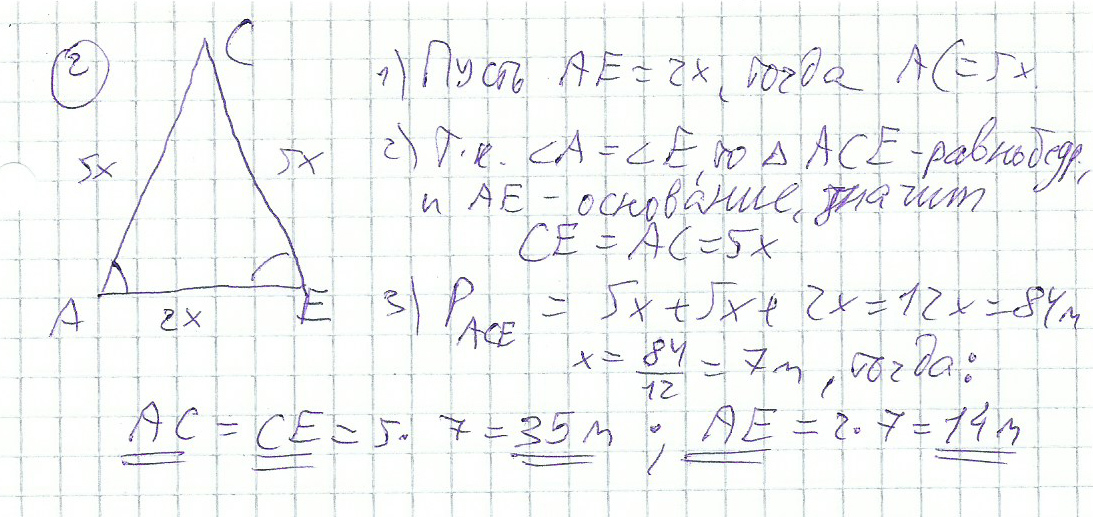 2
C
1) Пусть AE = 2x, тогда AC = 5x
5x
5x
2) Т.к. ∠A = ∠E, то △ ACE - равнобедр,
и AE - основание, значит
CE = AC = 5x
A
2x
E
3) P_ACE = 5x + 5x + 2x = 12x = 84м
x = 84/12 = 7м, тогда:
AC = CE = 5·7 = 35м ; AE = 2·7 = 14м